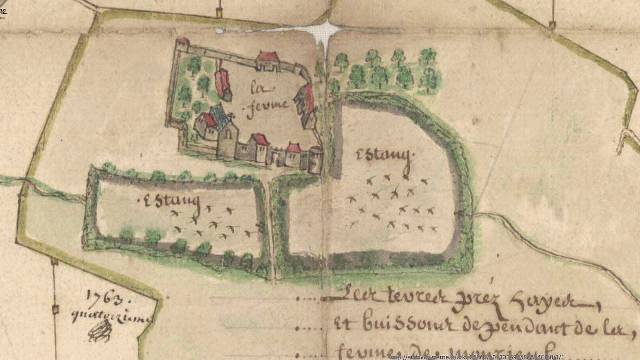 la
ferme
Estang.
Estang
1763.
quatorziesme
Les terres préz hayes,
et buissons dependant de la,
ferme de